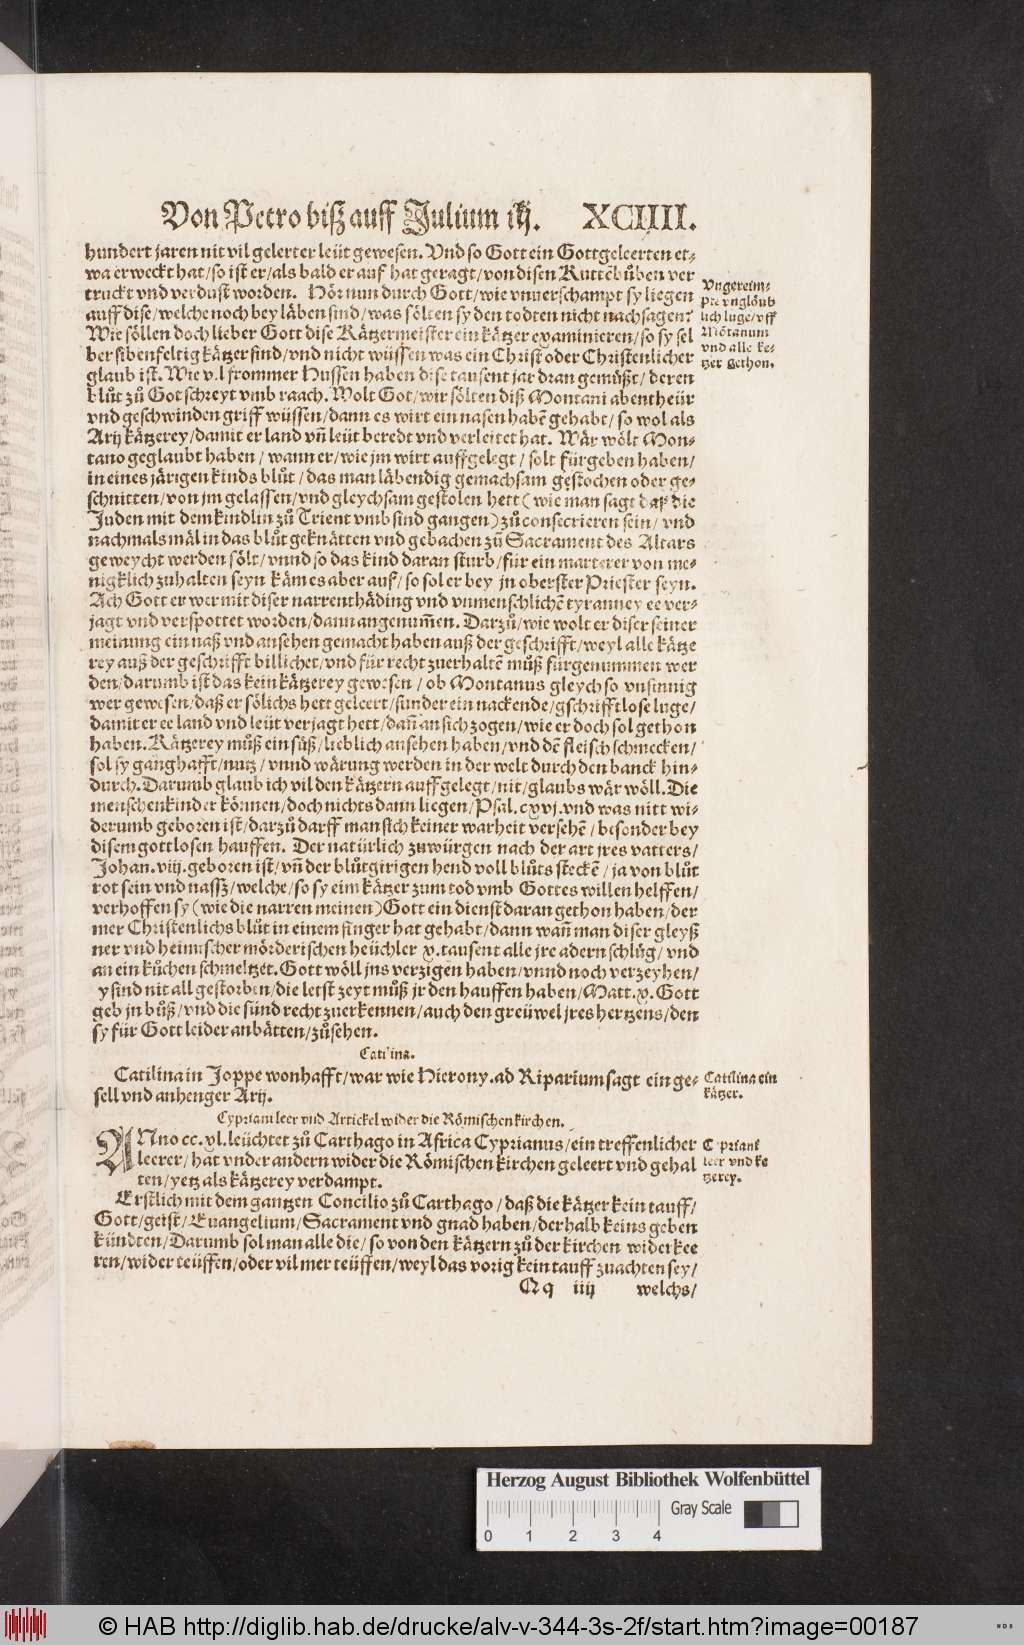 Von Petro biß auff Julium iij. XCIIII.
hundert jaren nit vil gelerter leüt gewesen. Vnd so Gott ein Gottgeleerten et-
wa erweckt hat/so ist er/als bald er auf hat geragt/von disen Kuttēbůben ver
truckt vnd verdust worden. Hör nun durch Gott/wie vnuerschampt sy liegen
auff dise/welche noch bey läben sind/was sölten sy den todten nicht nachsagen?
Wie söllen doch lieber Gott dise Kätzermeister ein kätzer examinieren/so sy sel
ber sibenfeltig kätzer sind/vnd nicht wüssen was ein Christ oder Christenlicher
glaub ist. Wie v.l frommer Hussen haben dise tausent jar dran gemüßt/deren
blůt zů Got schreyt vmb raach. Wolt Got/wir sölten diß Montani abentheür
vnd geschwinden griff wüssen/dann es wirt ein nasen habē gehabt/so wol als
Arij kätzerey/damit er land vñ leüt beredt vnd verleitet hat. Wär wölt Mon-
tano geglaubt haben/wann er/wie jm wirt auffgelegt/solt fürgeben haben/
in eines järigen kinds blůt/das man läbendig gemachsam gestochen oder ge-
schnitten/von jm gelassen/vnd gleychsam gestolen hett (wie man sagt daß die
Juden mit dem kindlin zů Trient vmb sind gangen) zů consecrieren sein/vnd
nachmals mäl in das blůt geknätten vnd gebachen zů Sacrament des Altars
geweycht werden sölt/vnnd so das kind daran sturb/für ein marterer von me-
nigklich zuhalten seyn käm es aber auf/so sol er bey jn oberster Priester seyn.
Ach Gott er wer mit diser narrenthäding vnd vnmenschlichē tyranney ee ver-
jagt vnd verspottet worden/dann angenum̃en. Darzů/wie wolt er diser seiner
meinung ein naß vnd ansehen gemacht haben auß der geschrifft/weyl alle kätze
rey auß der geschrifft billichet/vnd für recht zuerhaltē můß fürgenummen wer
den/darumb ist das kein kätzerey gewesen/ob Montanus gleych so vnsinnig
wer gewesen/daß er sölichs hett geleert/sunder ein nackende/gschrifftlose luge/
damit er ee land vnd leüt verjagt hett/dañ an sich zogen/wie er doch sol gethon
haben. Kätzerey můß ein süß/lieblich ansehen haben/vnd dē fleisch schmecken/
sol sy ganghafft/nutz/vnnd wärung werden in der welt durch den banck hin-
durch. Darumb glaub ich vil den kätzern auffgelegt/nit/glaubs wär wöll. Die
menschenkinder können/doch nichts dann liegen/Psal. cxvj. vnd was nitt wi-
derumb geboren ist/darzů darff man sich keiner warheit versehē/besonder bey
disem gottlosen hauffen. Der natürlich zuwürgen nach der art jres vatters/
Johan. viij. geboren ist/vñ der blůtgirigen hend voll blůts steckē/ja von blůt
rot sein vnd nassz/welche/so sy eim kätzer zum tod vmb Gottes willen helffen/
verhoffen sy (wie die narren meinen) Gott ein dienst daran gethon haben/der
mer Christenlichs blůt in einem finger hat gehabt/dann wañ man diser gleyß
ner vnd heimischer mörderischen heüchler x. tausent alle jre adern schlüg/vnd
an ein kůchen schmeltzet. Gott wöll jns verzigen haben/vnnd noch verzeyhen/
y sind nit all gestorben/die letst zeyt můß jr den hauffen haben/Matt.x. Gott
geb jn bůß/vnd die sünd recht zuerkennen/auch den greüwel jres hertzens/den
sy für Gott leider anbätten/zůsehen.
Catilina.
Catilina in Joppe wonhafft/war wie Hierony. ad Riparium sagt ein ge-
sell vnd anhenger Arij.
Cypriani leer vnd Artickel wider die Römischen kirchen.
ANno cc.xl. leüchtet zů Carthago in Africa Cyprianus/ein treffenlicher
leerer/hat vnder andern wider die Römischen kirchen geleert vnd gehal
ten/yetz als kätzerey verdampt.
Erstlich mit dem gantzen Concilio zů Carthago/daß die kätzer kein tauff/
Gott/geist/Euangelium/Sacrament vnd gnad haben/derhalb keins geben
kündten/Darumb sol man alle die/so von den kätzern zů der kirchen wider kee
ren/wider teüffen/oder vil mer teüffen/weyl das vorig kein tauff zuachten sey/
Qq iiij welchs/
Vngereim-
pte vnglöub
lich luge/vff
Mōtanum
vnd alle ke-
tzer gethon.
Catilina ein
kätzer.
Cypriani
leer vnd ke
tzerey.
Herzog August Bibliothek Wolfenbüttel
Gray Scale
0 1 2 3 4
© HAB http://diglib.hab.de/drucke/alv-v-344-3s-2f/start.htm?image=00187